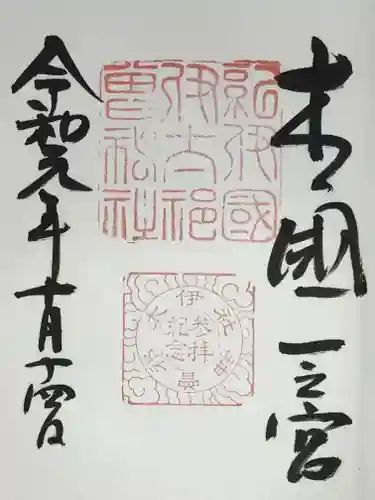 木国一之宮
紀伊國
伊太祁
曽神社
伊太祁曽神社
参拝
記念
令和元年十月十四日